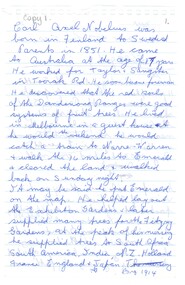 Copy 1. 1.
Carl Axel Nobelius was
born in Finland to Swedish
Parents in 1851. He came
to Australia at the age of 19 years
He worked for Taylor & Sangster
in Toorak Rd. He soon became foreman
He discovered that the red soils
of the Dandenong Ranges were good
systems of fruit trees. He lived
in Melbourne in a guest house &
he would weekend he would
catch a train to Narre-Warren
& walk the 16 miles to Emerald
& cleared the land & walked
back on Sunday night.
It may be said he put Emerald
on the map. He helped lay out
the Exhibition Gardens & later
supplied many trees for the Fitzroy
Gardens; at the peak of his nursery
he supplied trees to South Africa
South America, India, N.Z. Holland
France England & Japan
1914